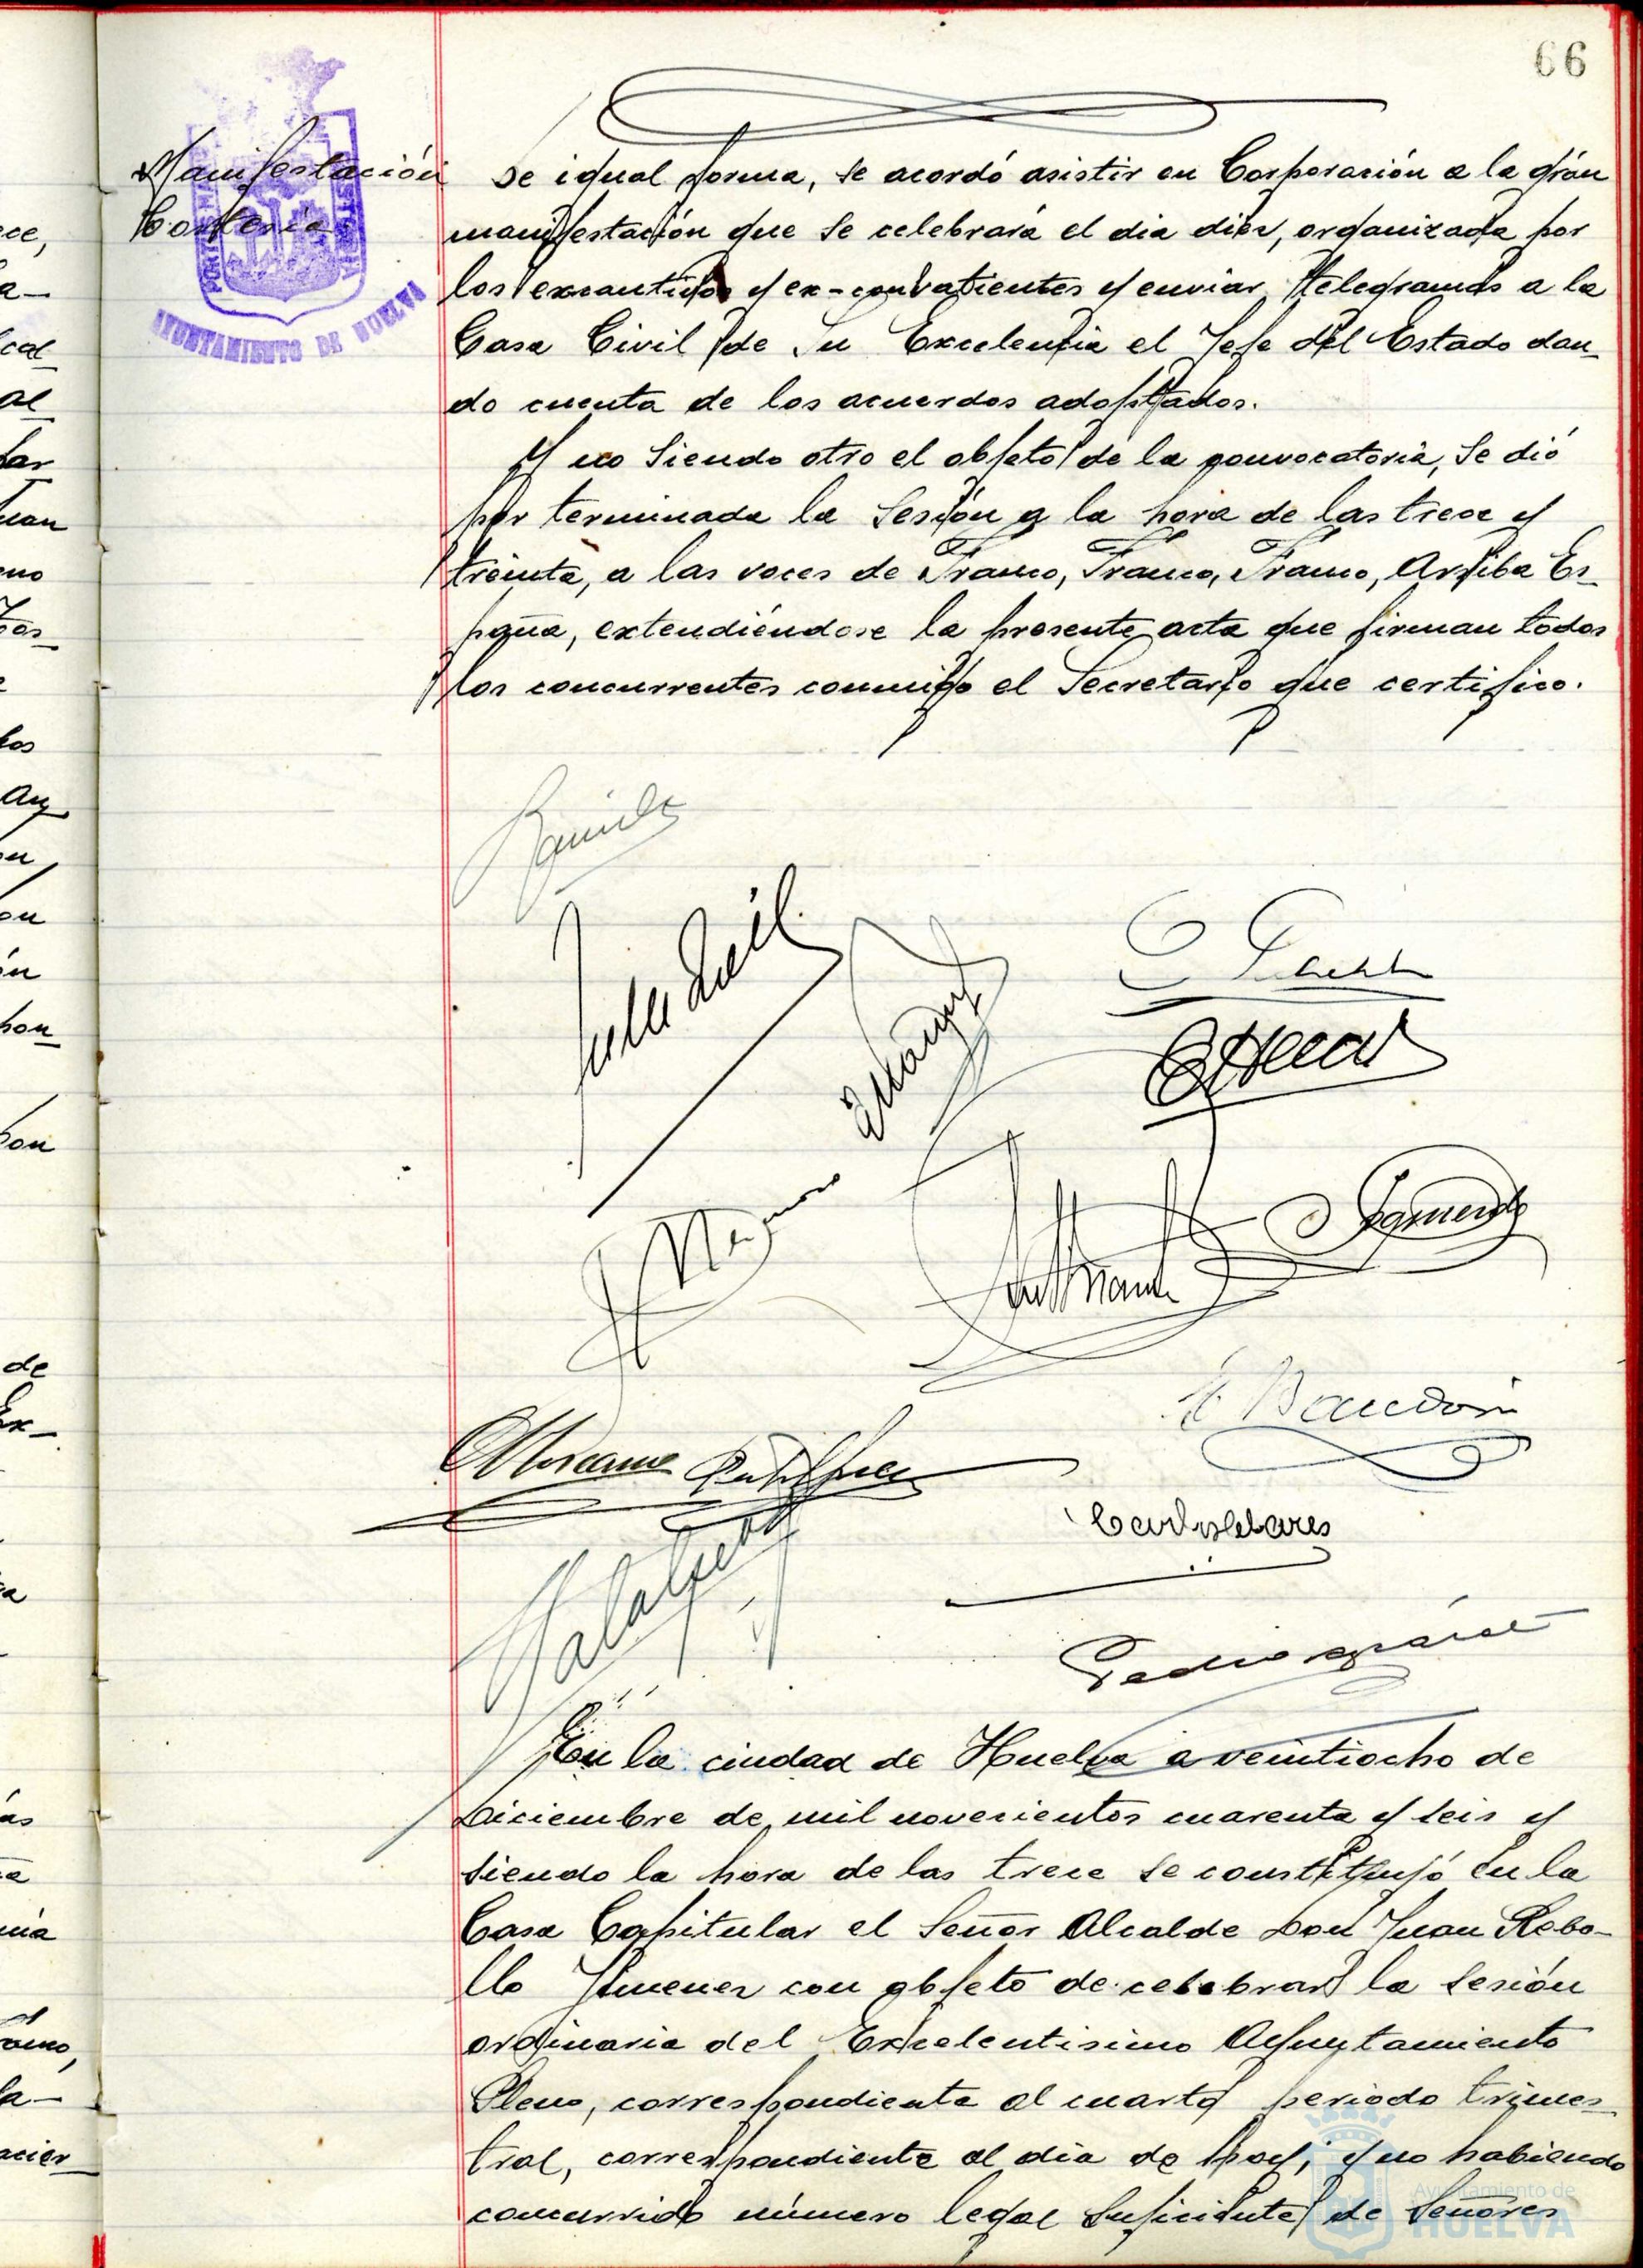 66
Manifestación
De igual forma, se acordó asistir en Corporación a la grán
manifestación que se celebrará el dia diez, organizada por
los excautivos y ex-convatientes y enviar telegramas a la
Casa Civil de Su Excelencia el Jefe del Estado dan-
do cuenta de los acuerdos adoptados.
Y no siendo otro el objeto de la convocatoria, se dió
por terminada la sesión a la hora de las trece y
treinta, a las voces de Franco, Franco, Franco, Arriba Es-
paña, extendiéndose la presente acta que firman todos
los concurrentes conmigo el Secretario que certifico.
En la ciudad de Huelva a veintiocho de
Diciembre de mil novecientos cuarenta y seis y
siendo la hora de las trece se constituyó en la
Casa Capitular el Señor Alcalde Don Juan Rebo-
llo Jimenez con objeto de celebrar la sesión
ordinaria del Excelentisimo Ayuntamiento
Pleno, correspondiente al cuarto periodo trimes-
tral, correspondiente al dia de hoy; y no habiendo
concurrido número legal suficiente de Señores
AYUNTAMIENTO DE HUELVA
Ayuntamiento de
HUELVA